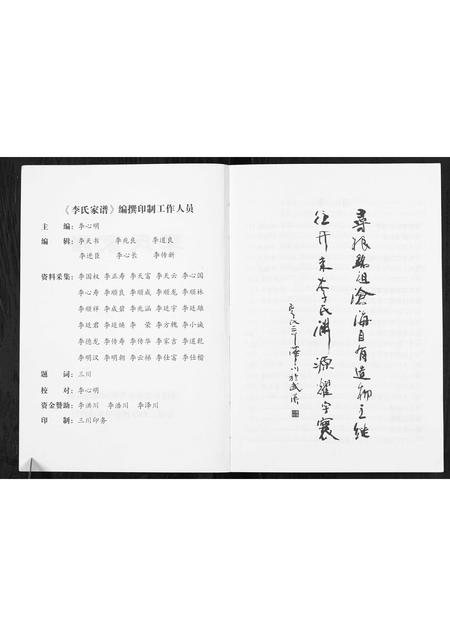 《李氏家谱》编撰印制工作人员
主　编：李心明
编　辑：李天书　李兆良　李道良
李进臣　李心长　李传新
资料采集：李国权　李正寿　李天富　李天云　李心国
李心寿　李顺良　李顺成　李顺龙　李顺林
李顺祥　李成蓥　李兆涵　李廷宇　李廷雄
李廷君　李廷焕　李　荣　李方槐　李小诚
李德龙　李传寿　李传华　李家言　李道乾
李明汉　李明朝　李云梯　李仕富　李仕楷
题　词：三川
校　对：李心明
资金赞助：李洪川　李浩川　李泽川
印　制：三川印务
寻根祭祖沧海自有造物主继
往开来李氏渊源耀宇寰